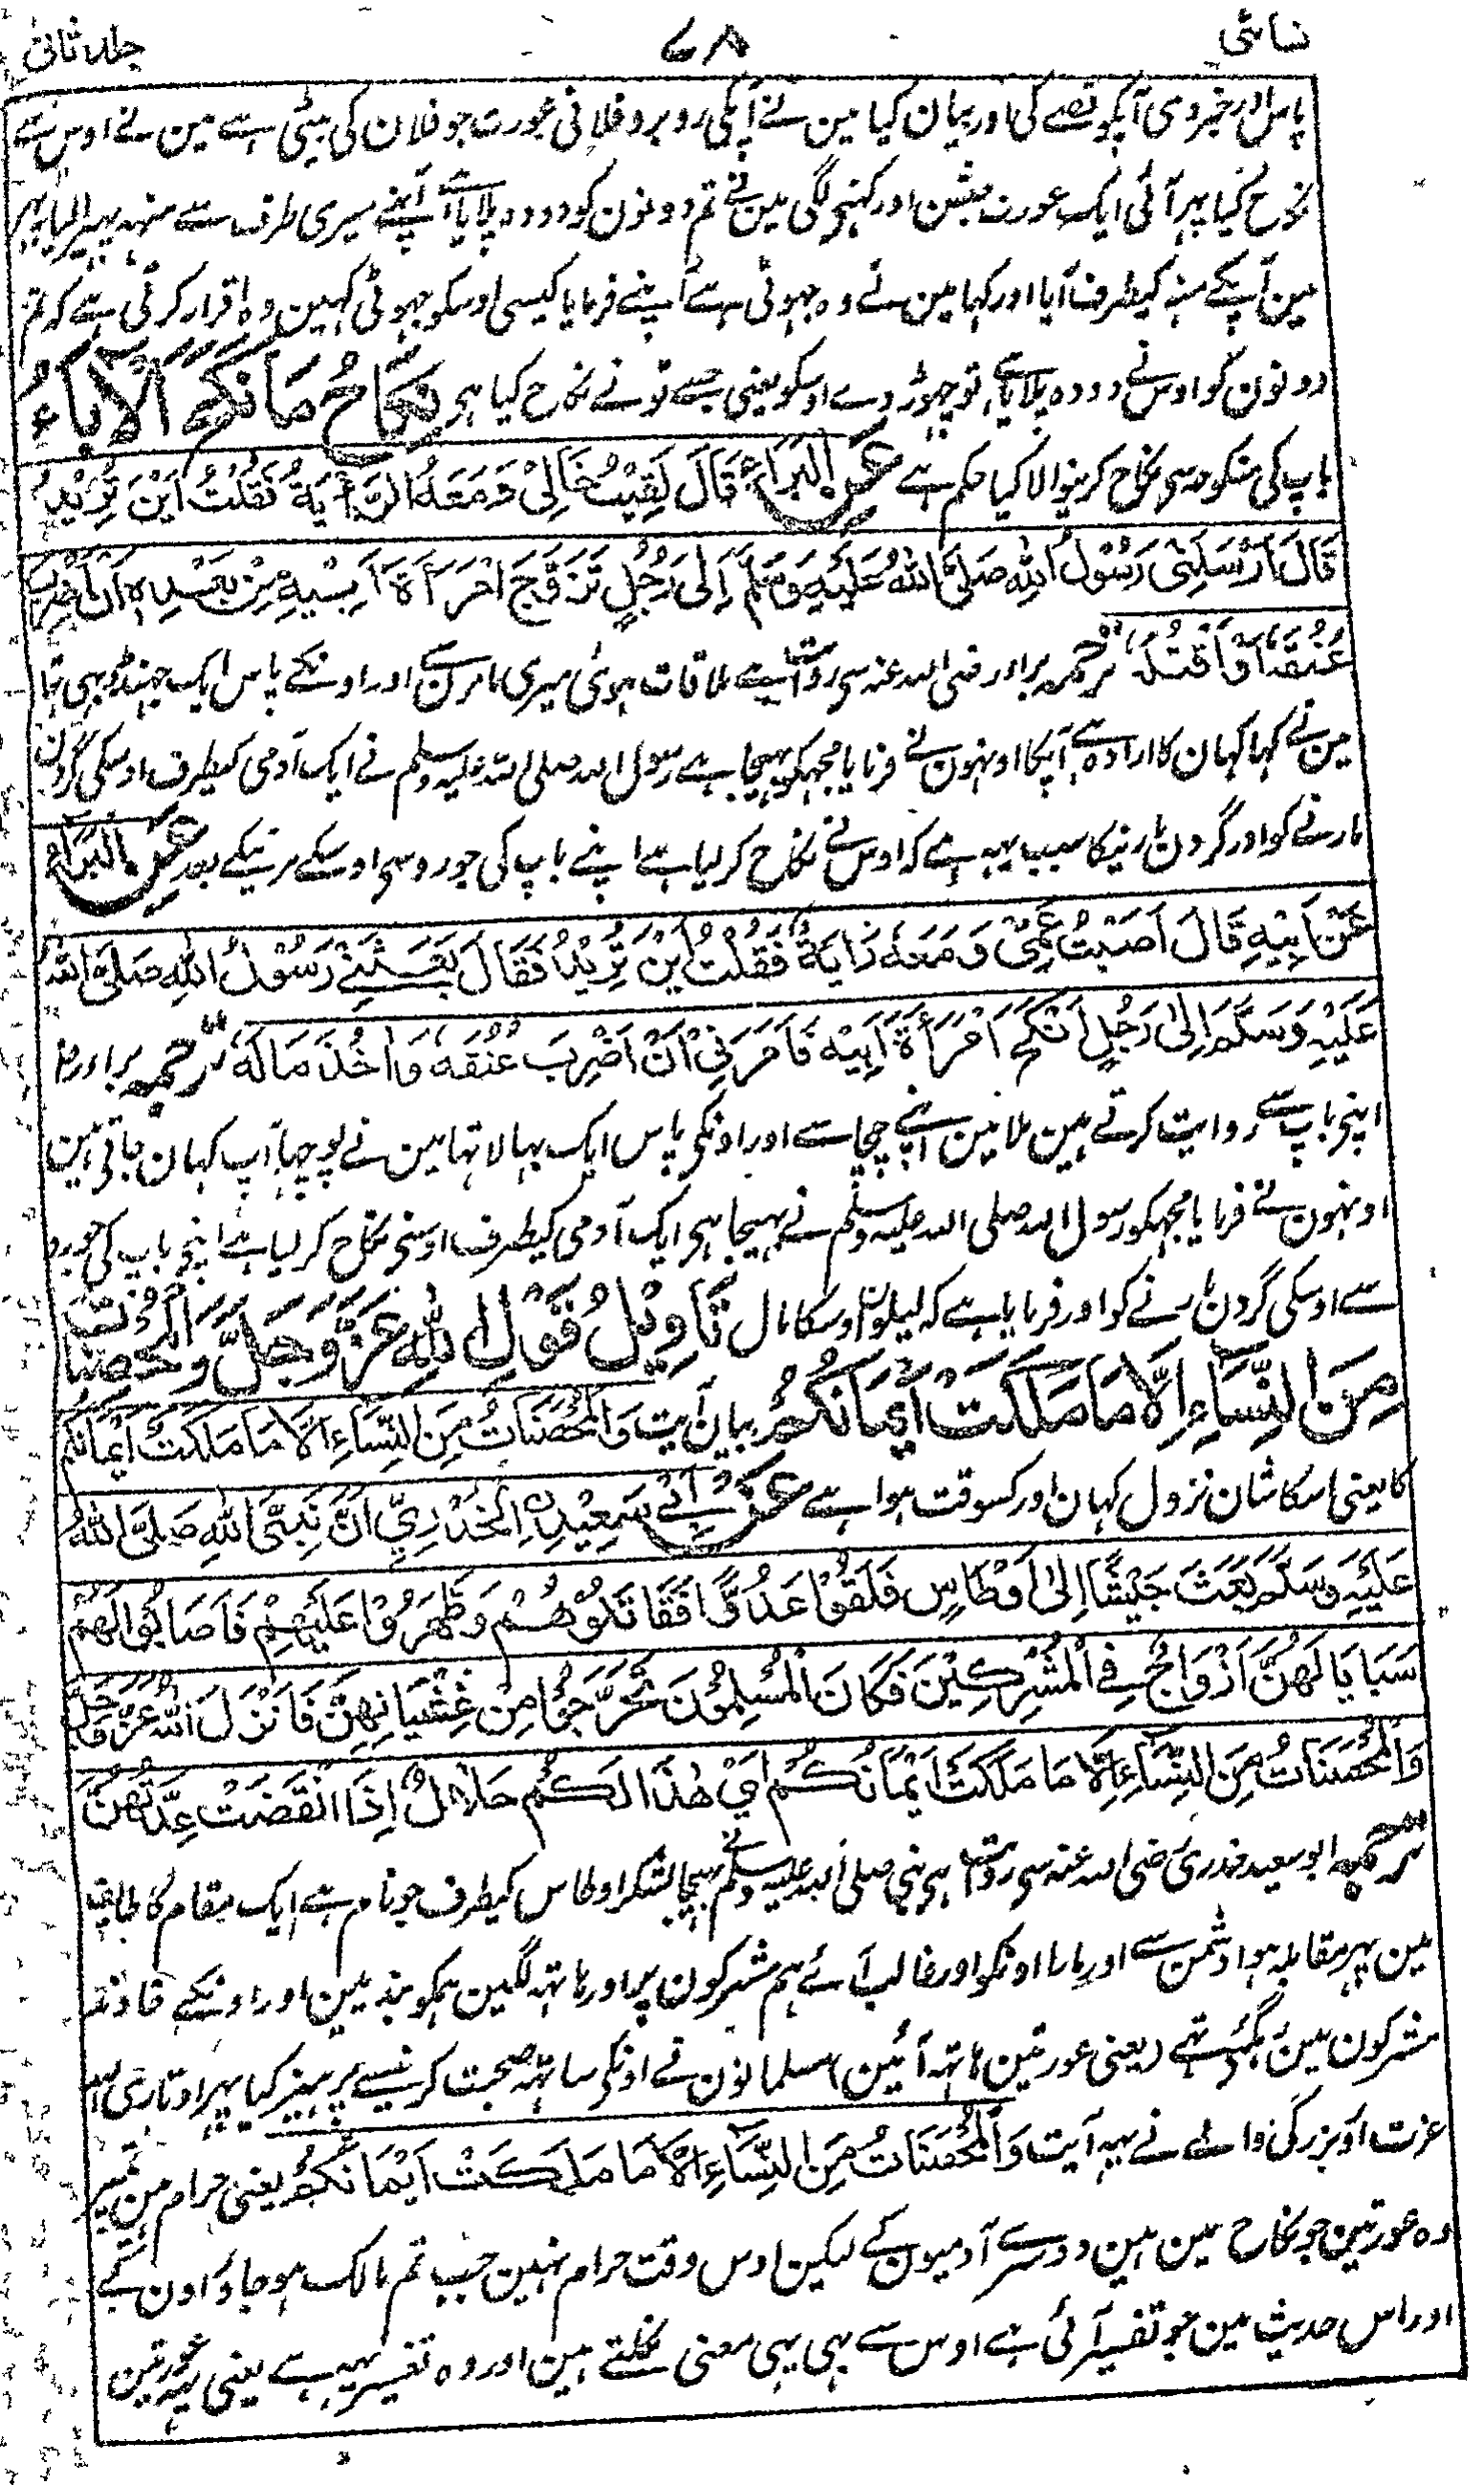 نسائی ۷۸ جلد ثانی
پاس اور خبر دی آپکو قصے کی اور بیان کیا مین نے آپکی روبرو فلانی عورت جو فلان کی بیٹی ہے مین نے اوس سے
نکاح کیا پہر آئی ایک عورت حبشن اور کہنی لگی مین نے تم دونون کو دودہ پلایا ہے آپنے میری طرف سے منہہ پہیر الیا پہر
مین آپکے منہ کیطرف آیا اور کہا مین نے وہ جہوٹی ہے آپنے فرمایا کیسی اوسکو جہوٹی کہین وہ اقرار کرتی ہے کہ تم
دونون کو اوس نے دودہ پلایا ہے تو چہوڑ دے اوسکو یعنی جسے تونے نکاح کیا ہی نِكَاحُ مَا نَكَحَ الْآبَاءُ
باپ کی منکوحہ سی نکاح کرنیوالا کیا حکم ہے عَنِ الْبَرَاءِ قَالَ لَقِيْتُ خَالِيْ وَمَعَهُ الرَّايَةُ فَقُلْتُ اَيْنَ تُرِيْدُ
قَالَ اَرْسَلَنِيْ رَسُوْلُ اللهِ صَلَّى اللهُ عَلَيْهِ وَسَلَّمَ اِلٰى رَجُلٍ تَزَوَّجَ امْرَأَةَ اَبِيْهِ مِنْ بَعْدِهٖ اَنْ اَضْرِبَ
عُنُقَهٗ اَوْ اَقْتُلَهٗ ترجمہ برا رضی اللہ عنہ سی روایت ہے ملاقات ہوئی میری مامون سے اور اونکے پاس ایک جہنڈا بہی تہا
مین نے کہا کہان کا ارادہ ہے آپکا اونہون نے فرمایا مجہکو بہیجا ہے رسول اللہ صلی اللہ علیہ وسلم نے ایک آدمی کیطرف اوسکی گردن
مارنے کو اور گردن مارنیکا سبب یہہ ہے کہ اوس نے نکاح کر لیا ہے اپنے باپ کی جورو سی اوسکے مرنیکے بعد عَنِ الْبَرَاءِ
عَنْ اَبِيْهِ قَالَ اَصَبْتُ عَمِّيْ وَمَعَهٗ رَايَةٌ فَقُلْتُ اَيْنَ تُرِيْدُ فَقَالَ بَعَثَنِيْ رَسُوْلُ اللهِ صَلَّى اللهُ
عَلَيْهِ وَسَلَّمَ اِلٰى رَجُلٍ نَكَحَ امْرَأَةَ اَبِيْهِ فَاَمَرَنِيْ اَنْ اَضْرِبَ عُنُقَهٗ وَاٰخُذَ مَالَهٗ ترجمہ برا رضی
اپنی باپ سے روایت کرتے ہین ملا مین اپنے چچا سے اور اونکی پاس ایک بہالا تہا مین نے پوچہا آپ کہان جاتی ہین
اونہون نے فرمایا مجہکو رسول اللہ صلی اللہ علیہ وسلم نے بہیجا ہی ایک آدمی کیطرف اوسنی نکاح کر لیا ہے اپنی باپ کی جورو
سے اوسکی گردن مارنے کو اور فرمایا ہے کہ لیلون اوسکا مال تَاوِيْلُ قَوْلِ اللهِ عَزَّ وَجَلَّ وَالْمُحْصَنٰتُ
مِنَ النِّسَاءِ اِلَّا مَا مَلَكَتْ اَيْمَانُكُمْ بیان آیت وَالْمُحْصَنَاتُ مِنَ النِّسَاءِ اِلَّا مَا مَلَكَتْ اَيْمَانُكُمْ
کا یعنی اسکا شان نزول کہان اور کسوقت ہوا ہے عَنْ اَبِيْ سَعِيْدِنِ الْخُدْرِيِّ اَنَّ نَبِيَّ اللهِ صَلَّى اللهُ
عَلَيْهِ وَسَلَّمَ بَعَثَ جَيْشًا اِلٰى اَوْطَاسٍ فَلَقُوْا عَدُوًّا فَقَاتَلُوْهُمْ وَظَهَرُوْا عَلَيْهِمْ فَاَصَابُوْا لَهُمْ
سَبَايَا لَهُنَّ اَزْوَاجٌ فِي الْمُشْرِكِيْنَ فَكَانَ الْمُسْلِمُوْنَ تَحَرَّجُوْا مِنْ غِشْيَانِهِنَّ فَاَنْزَلَ اللهُ عَزَّ وَجَلَّ
وَالْمُحْصَنَاتُ مِنَ النِّسَاءِ اِلَّا مَا مَلَكَتْ اَيْمَانُكُمْ اَيْ هٰذَا لَكُمْ حَلَالٌ اِذَا انْقَضَتْ عِدَّتُهُنَّ
ترجمہ ابو سعید خدری رضی اللہ عنہ سی روایت ہی نبی صلی اللہ علیہ وسلم نے بہیجا لشکر اوطاس کیطرف جو نام ہے ایک مقام کا طایف
مین پہر مقابلہ ہوا دشمن سے اور مارا اونکو اور غالب آئے ہم مشرکون پر اور ہاتہہ لگین ہمکو بندیین اور اونکے خاوند
مشرکون مین رہگئے تہے (یعنی عورتین ہاتہہ آئین) مسلمانون نے اونکی ساتہہ صحبت کرنیسے پرہیز کیا پہر اوتاری اللہ
عزت اور بزرگی والے نے یہہ آیت وَالْمُحْصَنَاتُ مِنَ النِّسَاءِ اِلَّا مَا مَلَكَتْ اَيْمَانُكُمْ یعنی حرام ہین تمپر
وہ عورتین جو نکاح مین ہین دوسرے آدمیون کے لیکن اوس وقت حرام نہین جب تم مالک ہو جاؤ اون کے
اور اس حدیث مین جو تفسیر آئی ہے اوس سے بہی یہی معنی نکلتے ہین اور وہ تفسیر یہہ ہے یعنی یہہ عورتین